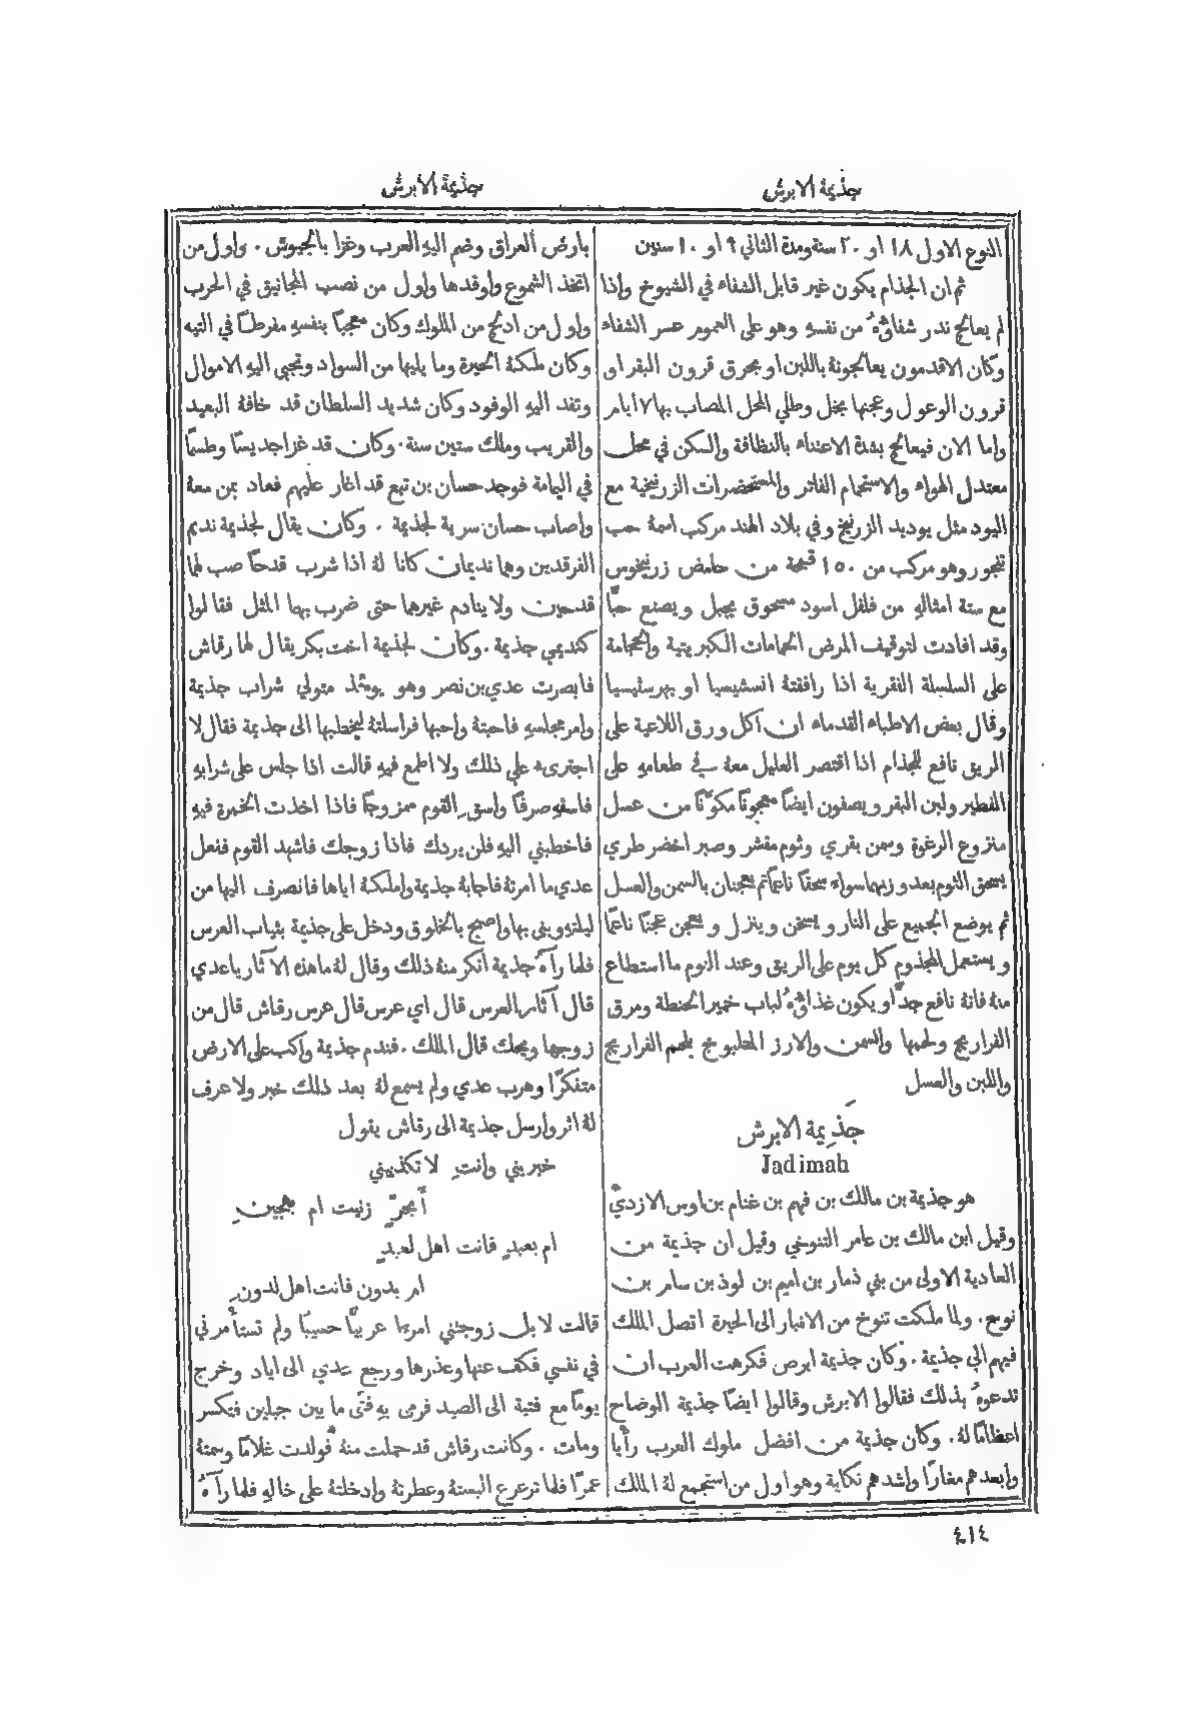 جذيمة الابرش
جذيمة الابرش
النوع الاول ١٨ او ٢٠ سنة ومدة الثاني ٩ او ١٠ سنين
ثم ان الجذام يكون غير قابل الشفاء في الشيوخ واذا
لم يعالج ندر شفاؤهُ من نفسهِ وهو على العموم عسر الشفاء
وكان الاقدمون يعالجونهُ باللبن او بحرق قرون البقر او
قرون الوعول وعجنها بخل وطلي المحل المصاب بها ٧ ايام
واما الان فيعالج بشدة الاعتناء بالنظافة والسكن في محل
معتدل الهواء والاستحمام الفاتر والمستحضرات الزرنيخية مع
اليود مثل يوديد الزرنيخ وفي بلاد الهند مركب اسمهُ حب
تنجور وهو مركب من ١٥٠ قمحة من حامض زرنيخوس
مع ستة امثالهِ من فلفل اسود مسحوق يجبل ويصنع حبًّا
وقد افادت لتوقيف المرض الحمامات الكبريتية والحجامة
على السلسلة الفقرية اذا رافقتهُ انستيسيا او بيرستيسيا
وقال بعض الاطباء القدماء ان اكل ورق اللاعية على
الريق نافع للجذام اذا اقتصر العليل معهُ في طعامهِ على
الفطير ولبن البقر ويصفون ايضًا معجونًا مكوّنًا من عسل
منزوع الرغوة وسمن بقري وثوم مقشر وصبر اخضر طري
يسحق الثوم بعد وزنهما سواء سحقًا ناعمًا ثم يعجنان بالسمن والعسل
ثم يوضع الجميع على النار ويسخن وينزل ويعجن عجنًا ناعمًا
ويستعمل المجذوم كل يوم على الريق وعند النوم ما استطاع
منهُ فانهُ نافع جدًّا ويكون غذاؤهُ لباب خمير الحنطة ومرق
الفراريج ولحمها والسمن والارز المطبوخ بلحم الفراريج
واللبن والعسل
جَذِيمة الابرش
Jadimah
هو جذيمة بن مالك بن فهم بن غنام بن اوس الازديّ
وقيل ابن مالك بن عامر التنوخي وقيل ان جذيمة من
العادية الاولى من بني ذمار بن اميم بن لوذ بن سام بن
نوح. ولما ملكت تنوخ من الانبار الى الحيرة اتصل الملك
فيهم الى جذيمة. وكان جذيمة ابرص فكرهت العرب ان
تدعوهُ بذلك فقالوا الابرش وقالوا ايضًا جذيمة الوضاح
اعظامًا لهُ. وكان جذيمة من افضل ملوك العرب رأيا
وابعدهم مغارًا واشدهم نكاية وهو اول من استجمع لهُ الملك
بارض العراق وضم اليهِ العرب وغزا بالجيوش. واول من
اتخذ الشموع واوقدها واول من نصب المجانيق في الحرب
واول من ادلج من الملوك وكان معجبًا بنفسهِ مفرطًا في التيه
وكان ملكهُ الحيرة وما يليها من السواد وتجبى اليهِ الاموال
وتفد اليهِ الوفود وكان شديد السلطان قد خافهُ البعيد
والقريب وملك ستين سنة. وكان قد غزا جديسًا وطسمًا
في اليمامة فوجد حسان بن تبع قد اغار عليهم فعاد بمن معهُ
واصاب حسان سرية لجذيمة. وكان يقال لجذيمة نديم
الفرقدين وهما نديمان كانا لهُ اذا شرب قدحًا صب لهما
قدحين ولا ينادم غيرهما حتى ضرب بهما المثل فقالوا
كنديمي جذيمة. وكان لجذيمة اخت بكر يقال لها رقاش
فابصرت عدي بن نصر وهو يومئذ متولي شراب جذيمة
وامر مجلسهِ فاحبتهُ واحبها فراسلتهُ ليخطبها الى جذيمة فقال لا
اجترىء على ذلك ولا اطمع فيهِ قالت اذا جلس على شرابهِ
فاسقهِ صرفًا واسقِ القوم ممزوجًا فاذا اخذت الخمرة فيهِ
فاخطبني اليهِ فلن يردك فاذا زوجك فاشهد القوم ففعل
عدي ما امرتهُ فاجابهُ جذيمة واملكهُ اياها فانصرف اليها من
ليلتهِ وبنى بها واصبح بالخلوق ودخل على جذيمة بثياب العرس
فلما رآهُ جذيمة انكر منهُ ذلك وقال لهُ ما هذه الآثار يا عدي
قال آثار العرس قال اي عرس قال عرس رقاش قال من
زوجها ويحك قال الملك. فندم جذيمة واكب على الارض
متفكرًا وهرب عدي ولم يسمع لهُ بعد ذلك خبر ولا عرف
لهُ اثر وارسل جذيمة الى رقاش يقول
خبريني وانتِ لا تكذبيني
أبحرٍّ زنيت ام بهجينِ
ام بعبدٍ فانت اهل لعبدٍ
ام بدون فانت اهل لدونِ
قالت لا بل زوجتني امرءًا عربيًّا حسيبًا ولم تستأمرني
في نفسي فكف عنها وعذرها ورجع عدي الى اياد وخرج
يومًا مع فتية الى الصيد فرمى بهِ فتًى ما بين جبلين فتكسر
ومات. وكانت رقاش قد حملت منهُ فولدت غلامًا وسمتهُ
عمرًا فلما ترعرع البستهُ وعطرتهُ وادخلتهُ على خالهِ فلما رآهُ
٤١٤